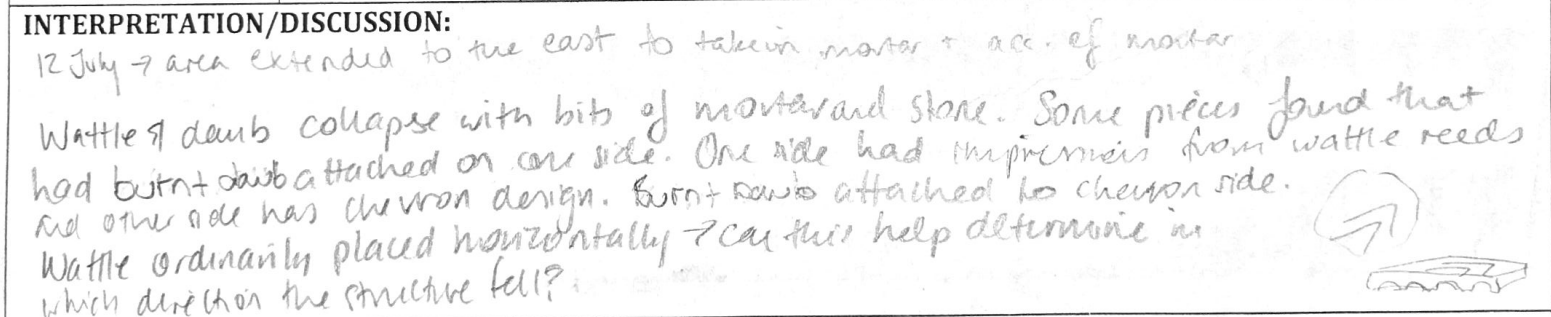 INTERPRETATION/DISCUSSION:
12 July → area extended to the east to take in mortar + acc. of mortar
Wattle & daub collapse with bits of mortar and stone. Some pieces found that
had burnt daub attached on one side. One side had impressions from wattle reeds
and other side has chevron design. Burnt daub attached to chevron side.
Wattle ordinarily placed horizontally → can this help determine in
which direction the structure fell?